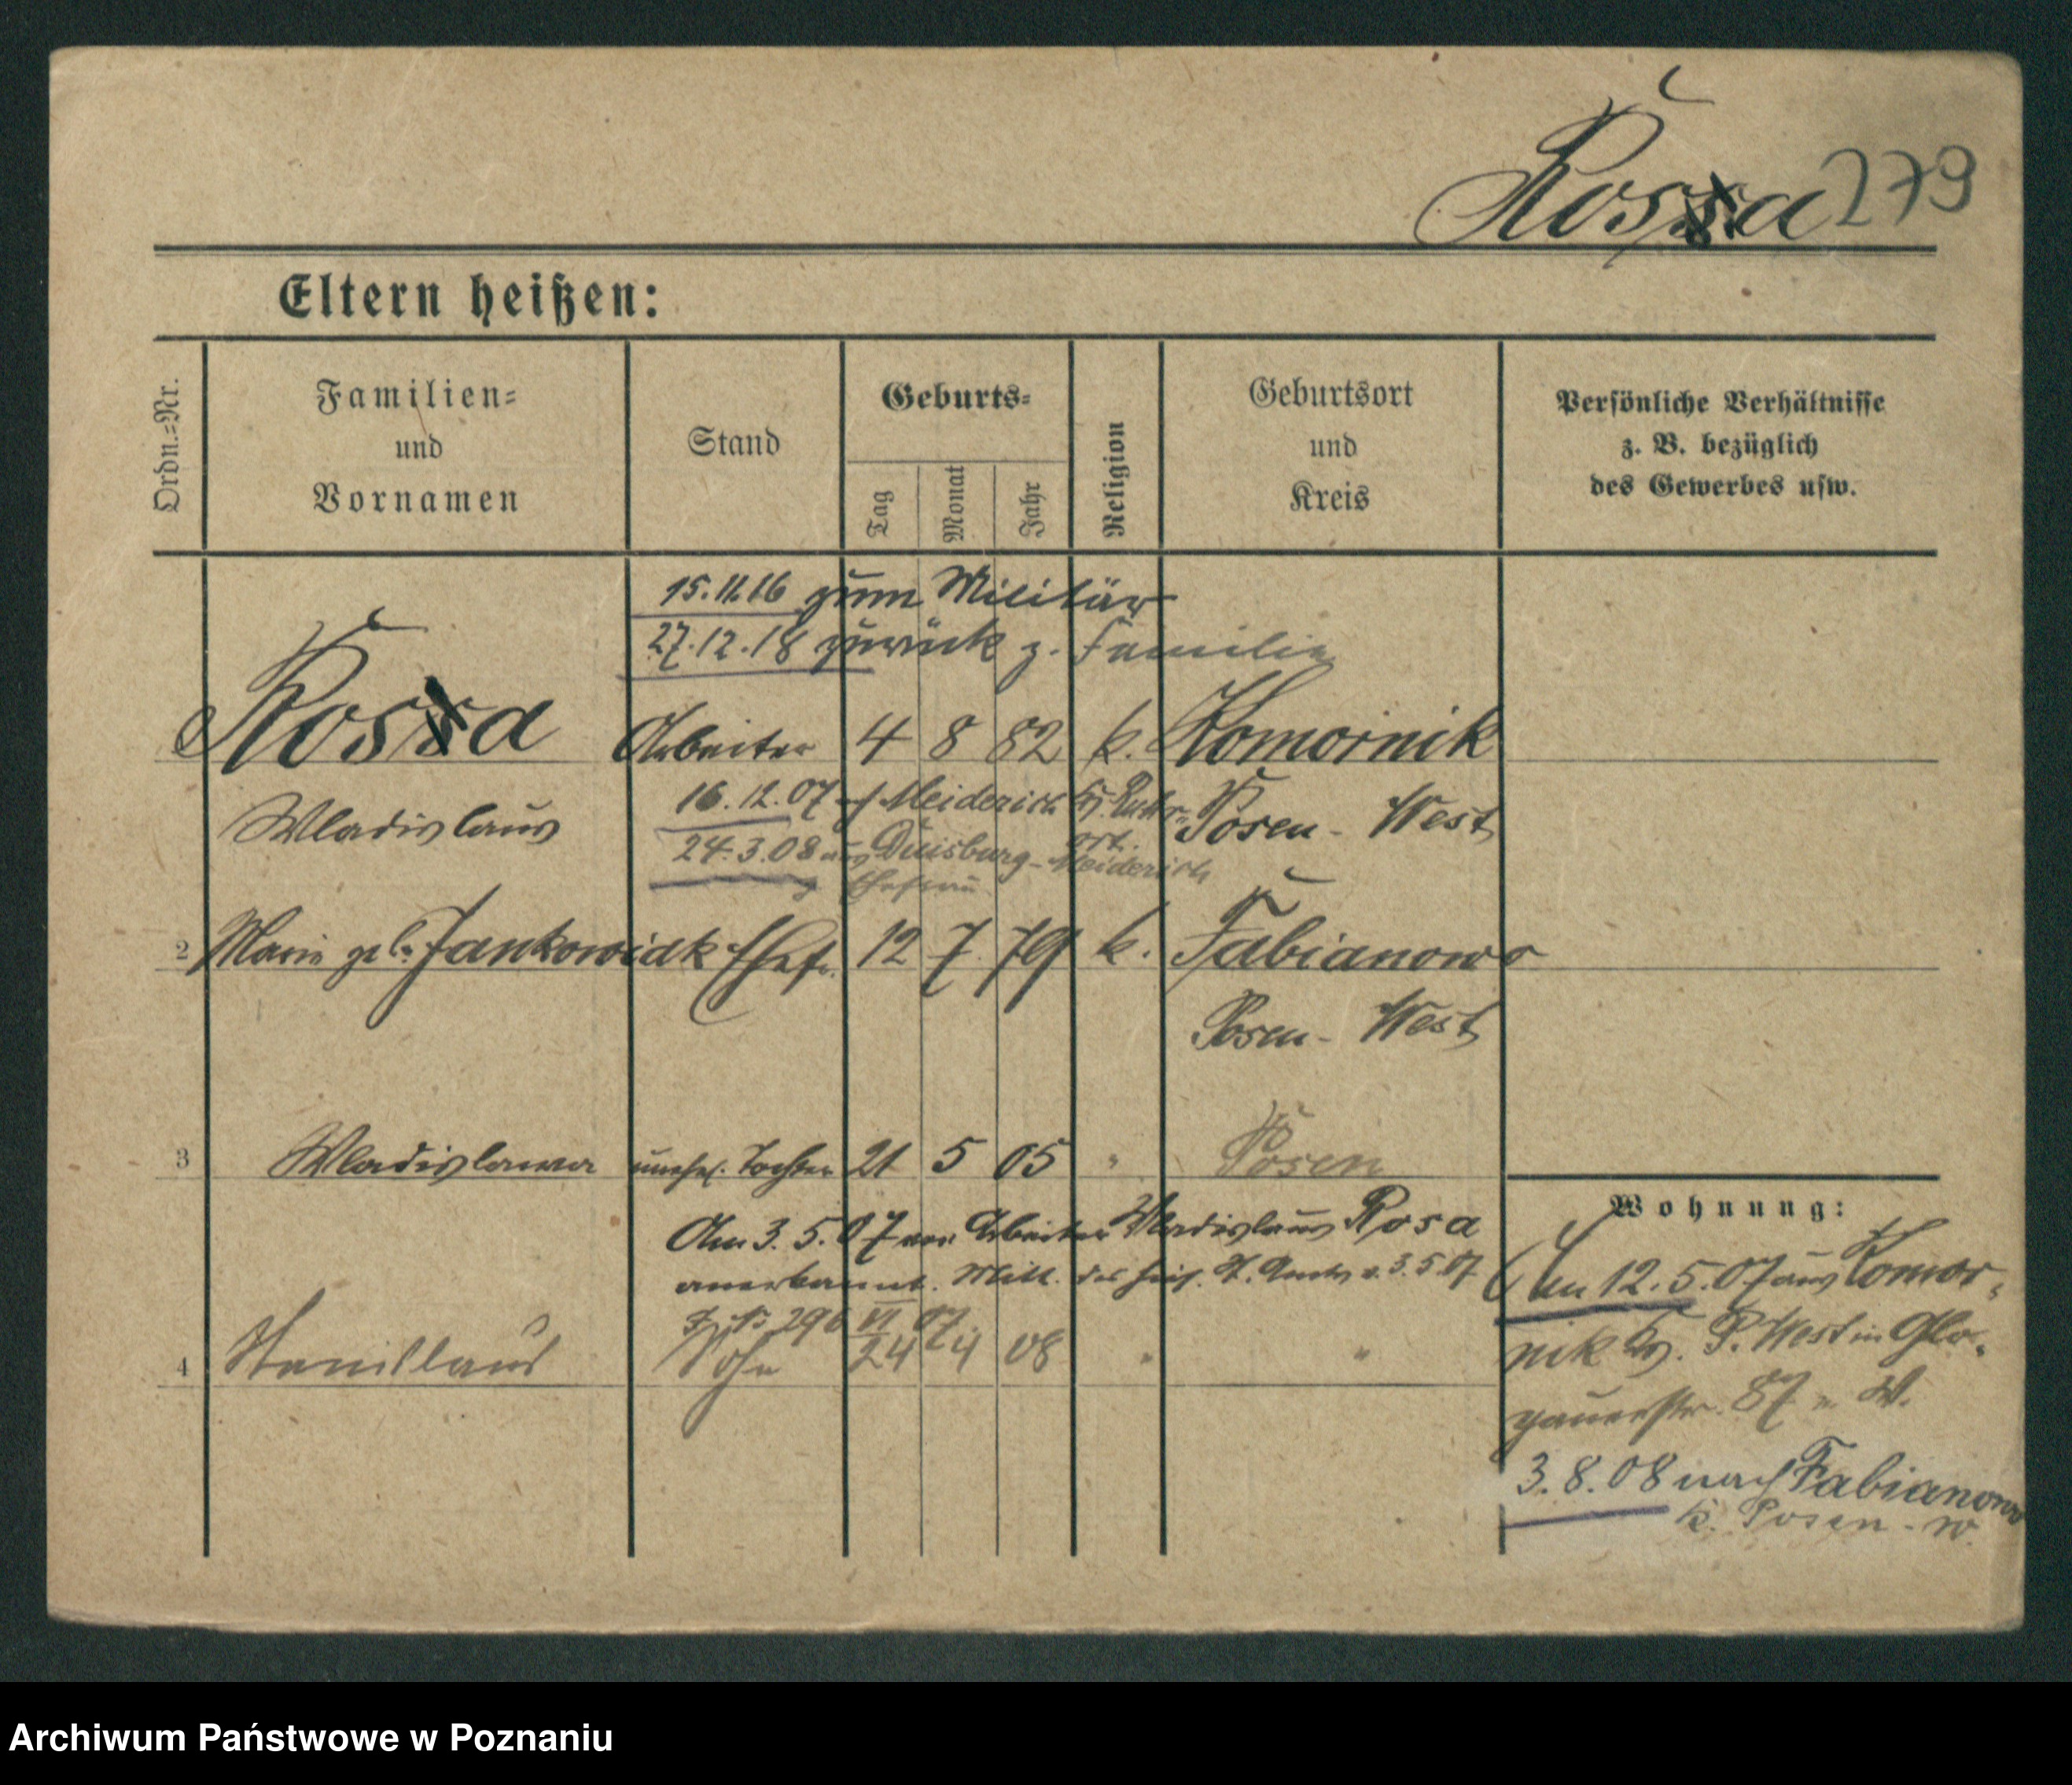 Rosa 279
Eltern heißen:
Ordn.=Nr.
Familien=
und
Vornamen
Stand
Geburts=
Tag
Monat
Jahr
Religion
Geburtsort
und
Kreis
Persönliche Verhältnisse
z. B. bezüglich
des Gewerbes usw.
15.11.16 zum Militär
27.12.18 zurück z. Familie
Rosa Arbeiter 4 8 82 k. Komornik
Wladislaus
16.12.07 Meiderich
Posen-West
24.3.08 aus Duisburg-Meiderich
z Ehefrau
2 Marie geb. Jankowiak Ehefr. 12 7 79 k. Fabianowo
Posen-West
3 Wladislawa unehel. Tochter 21 5 05 " Posen
Am 3.5.07 von Arbeiter Wladislaus Rosa
anerkannt. Mitt. des 3.5.07
296 VI 07
4 Stanislaus Sohn 24 4 08 " "
Wohnung:
Am 12.5.07 aus Komor-
nik Kr. P. West in Glo-
gauerstr. 87 W.
3.8.08 nach Fabianowo
k. Posen-W.
Archiwum Państwowe w Poznaniu